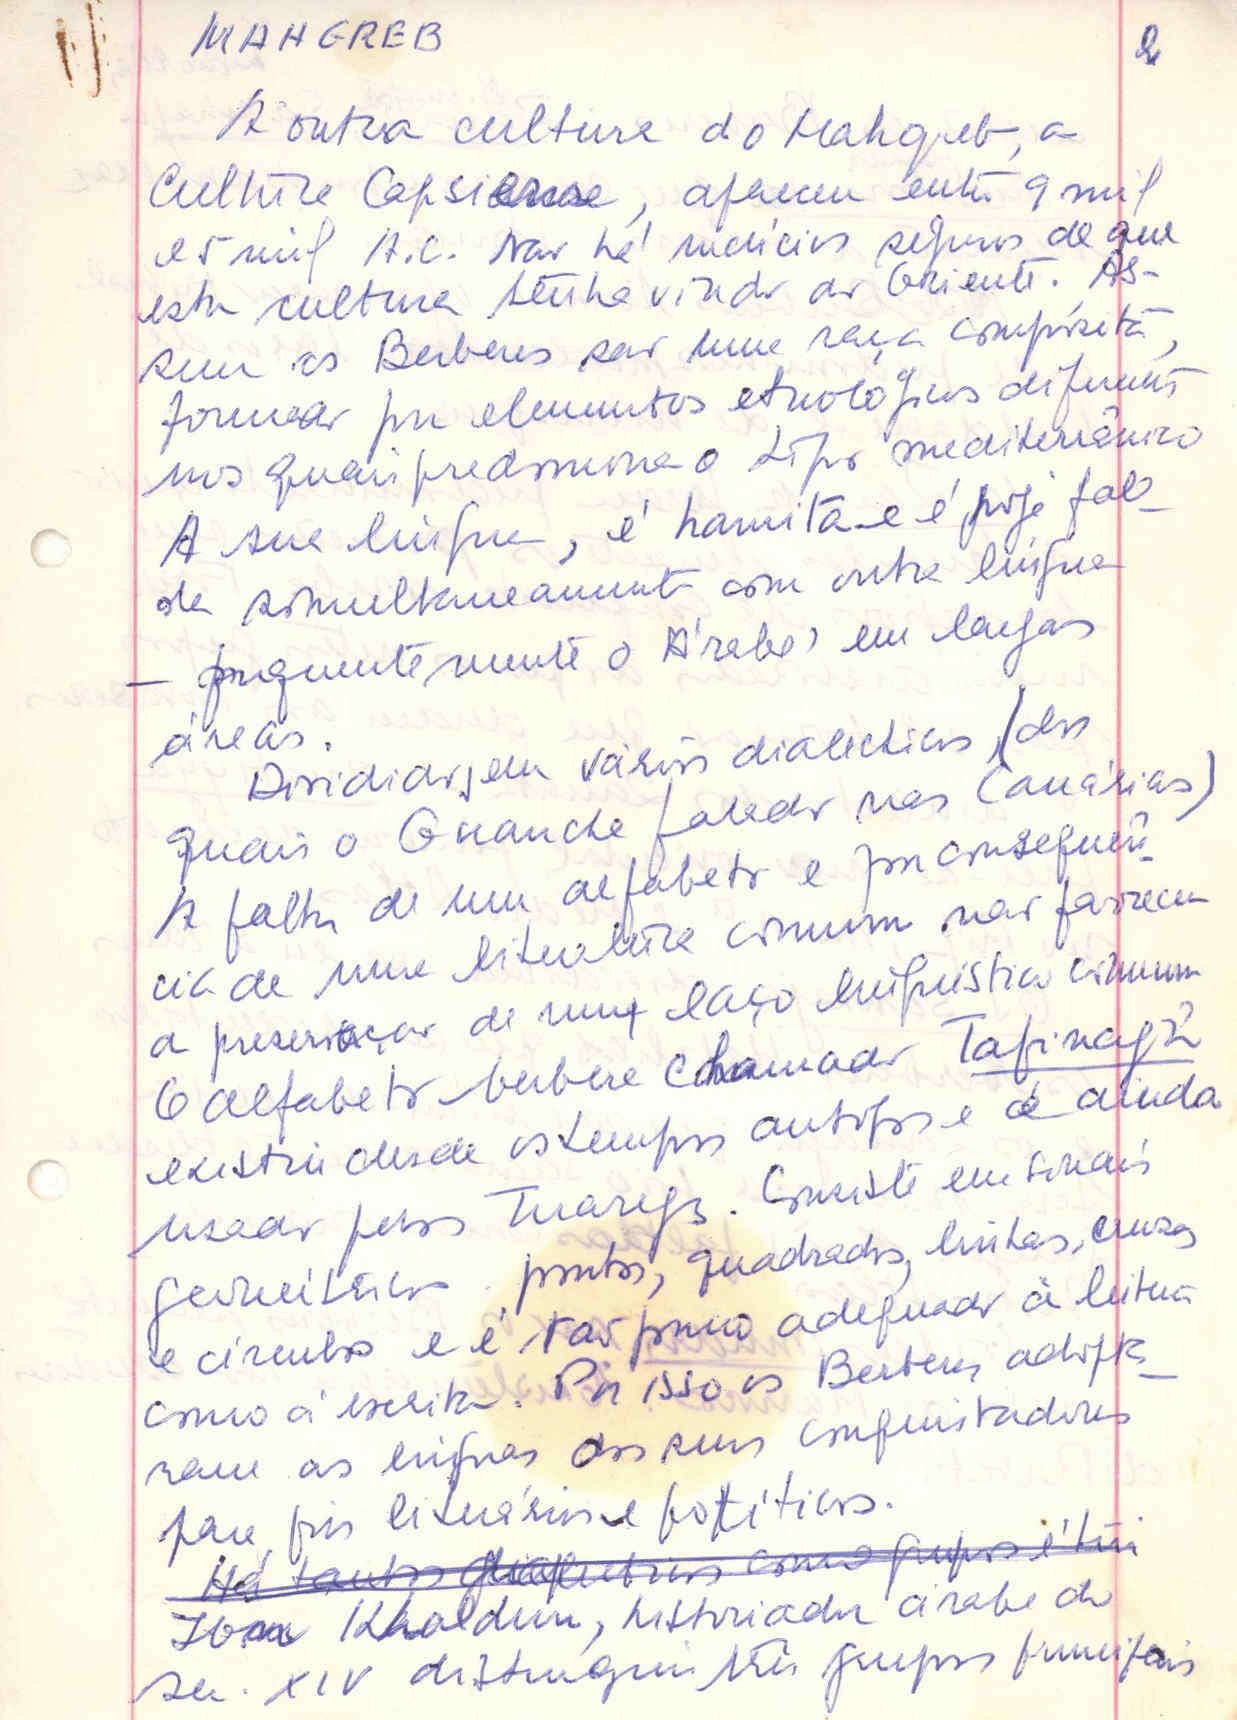 MAHGREB
2
A outra culture do Mahgreb, a
Culture Capsiense, apareceu entre 9 mil
e 5 mil A.C. Não há indícios seguros de que
esta cultura tenha vindo do Oriente. As-
sim os Berberes são uma raça compósita,
formado por elementos etnológicos diferentes
nos quais predomina o tipo mediterrânico
A sua língua, é hamita e é hoje fala-
da simultaneamente com outra língua
– frequentemente o Árabe, em largas
áreas.
Dividido em vários dialecticos, (dos
quais o Guanche falado nas Canárias)
A falta de um alfabeto e por consequên-
cia de uma literatura comum não favorecem
a preservação de um laço linguístico comum
O alfabeto berbere chamado Tafinagh
existiu desde os tempos antigos e é ainda
usado pelos Tuaregs. Consiste em sinais
geométricos. pontos, quadrados, linhas, cruzes
e círculos e é tão pouco adequado à leitura
como à escrita. Por isso os Berberes adopta-
ram as línguas dos seus conquistadores
para fins literários e políticos.
Há tantos dialectos como grupos étni
Ibn Khaldun, historiador árabe do
sec. XIV distinguiu três grupos principais